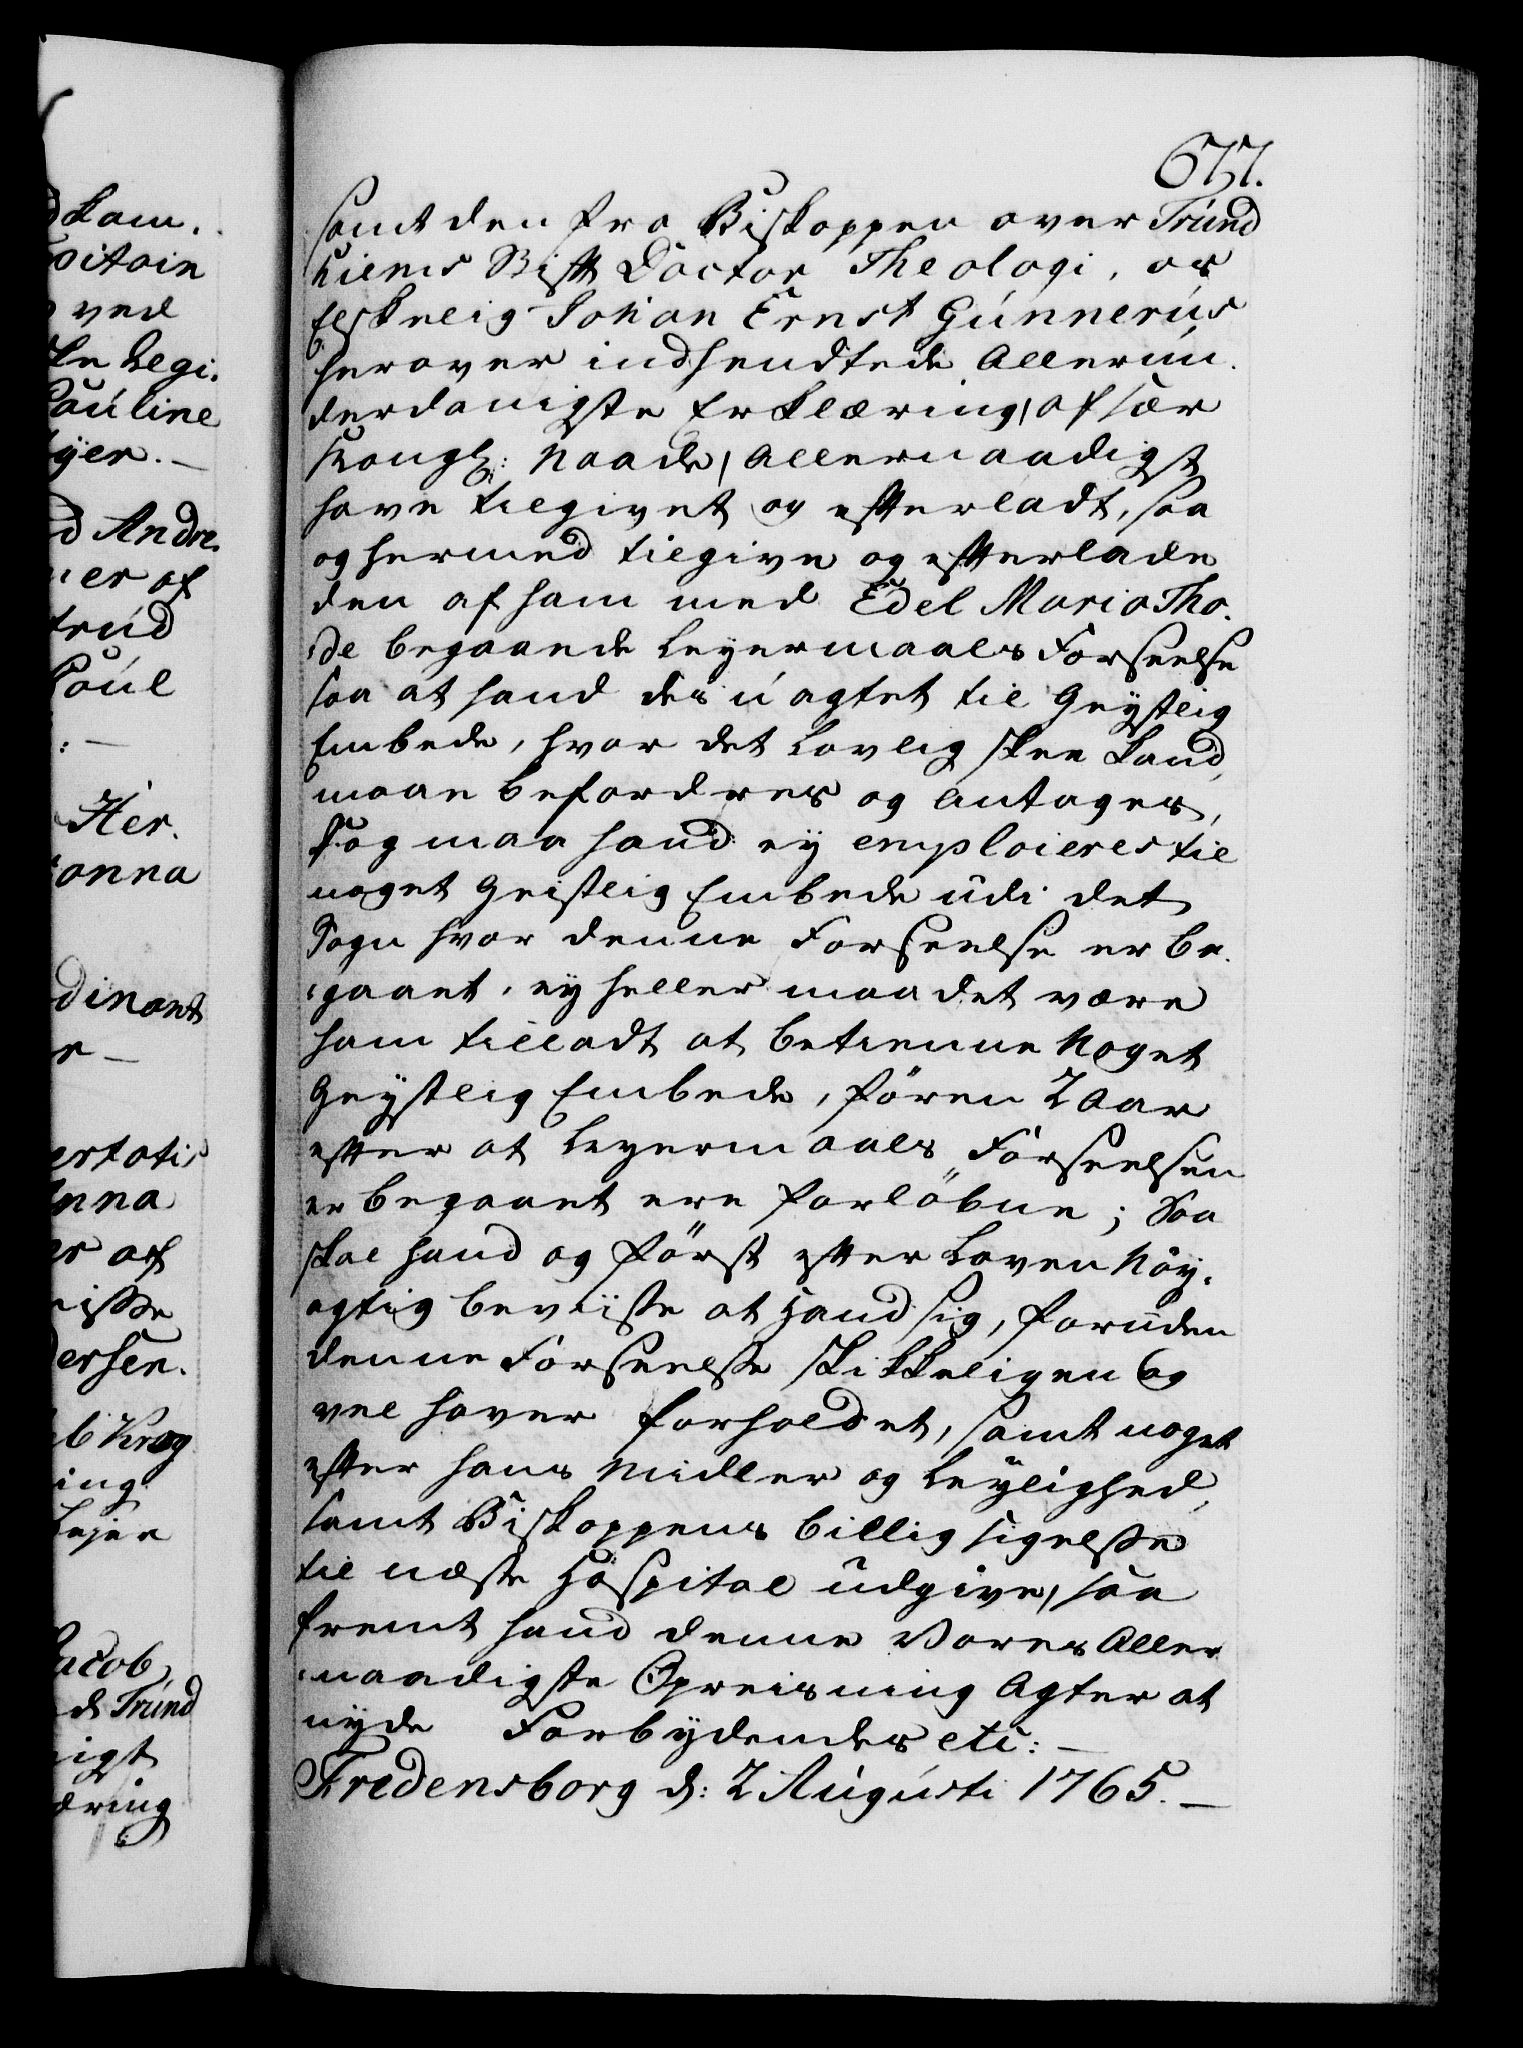 677.
samt den fra Biskoppen over Trund
hiems Stift Doctor Theologi, os
elskelig Johan Ernst Gunnerus
herover indsendtede allerun
derdanigste Erklæring, af sær
Kongl: Naade, allernaadigst
have tilgivet og efterladt, saa
og hermed tilgive og efterlade
den af ham med Edel Maria Tho-
de begaaede Leyermaals Forseelse
saa at hand des uagtet til Geystlig
Embede, hvor det lovlig skee kand,
maae befordres og antages,
dog maa hand ey emploieres til
noget Geistlig Embede udi det
Sogn hvor denne Forseelse er be-
gaaet, ey heller maa det være
ham tilladt at betienne noget
Geystlig Embede, føren 2 Aar
efter at Leyermaals Forseelsen
er begaaet ere forløbne; Saa
skal hand og først efter Loven nøy-
agtig beviisse at hand sig, foruden
denne Forseelse skikkeligen og
vel haver forholdet, samt noget
efter hans Midler og Leylighed,
samt Biskoppens billig sigelsse
til næste Hospital udgive, saa
fremt hand denne Vores Aller
naadigste Opreisning agter at
nyde Forbydendes etc: —
Fredensborg d: 2 Augusti 1765. —
d Kam.
pitain
ved
ke Regi.
Pauline
yer. —
d Andre.
er af
trud
Poul
: —
Her.
anna
dinant
r —
ertatis
Anna
er af
nisse
dersen.
b Krog
ing
Lejer
Jacob
de Trund
nigst
æring